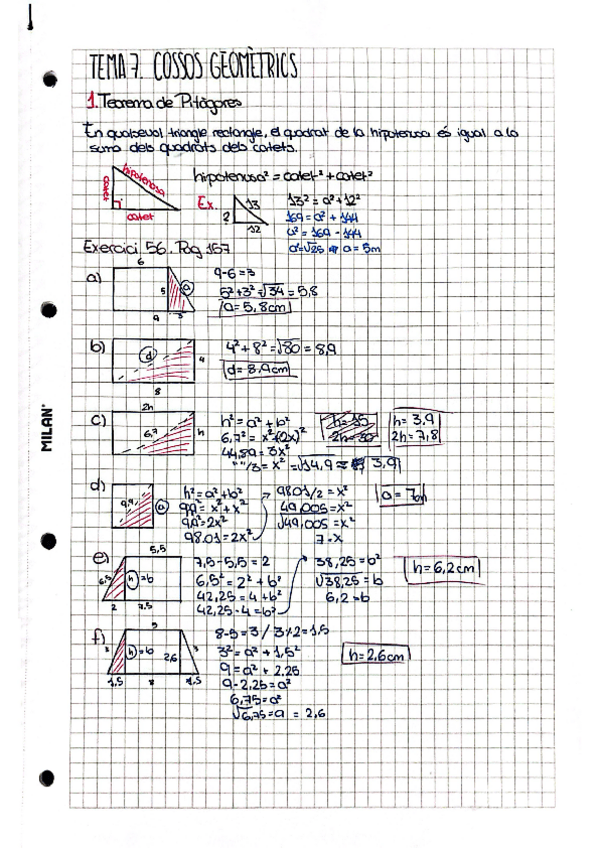 TEMA 7. COSSOS GEOMÈTRICS
1. Teorema de Pitàgores
En qualsevol triangle rectangle, el quadrat de la hipotenusa és igual a la
suma dels quadrats dels catets.
catet
hipotenusa
catet
hipotenusa² = catet² + catet²
Ex.
?
13
12
13² = a² + 12²
169 = a² + 144
a² = 169 - 144
a = √25 a = 5m
Exercici 56. Pag 157
a)
6
5
a
9
3
9-6=3
5² + 3² = √34 = 5,8
a = 5,8cm
b)
d
4
8
4² + 8² = √80 = 8,9
d = 8,9cm
c)
2h
6,7
h
h² = a² + b²
6,7² = x² + (2x)²
44,89 = 3x²
" "/3 = x² = √14,9 ≈ 3,9
h = 15
2h = 30
h = 3,9
2h = 7,8
d)
9,9
a
h² = a² + b²
9,9² = x² + x²
9,9² = 2x²
98,01 = 2x²
98,01/2 = x²
49,005 = x²
√49,005 = x²
7 = x
a = 7cm
e)
5,5
6,5
h = b
2
7,5
7,5 - 5,5 = 2
6,5² = 2² + b²
42,25 = 4 + b²
42,25 - 4 = b²
38,25 = b²
√38,25 = b
6,2 = b
h = 6,2cm
f)
5
3
h = b
2,6
3
1,5
8
1,5
8-5 = 3 / 3:2 = 1,5
3² = a² + 1,5²
9 = a² + 2,25
9 - 2,25 = a²
6,75 = a²
√6,75 = a = 2,6
h = 2,6cm
MILAN